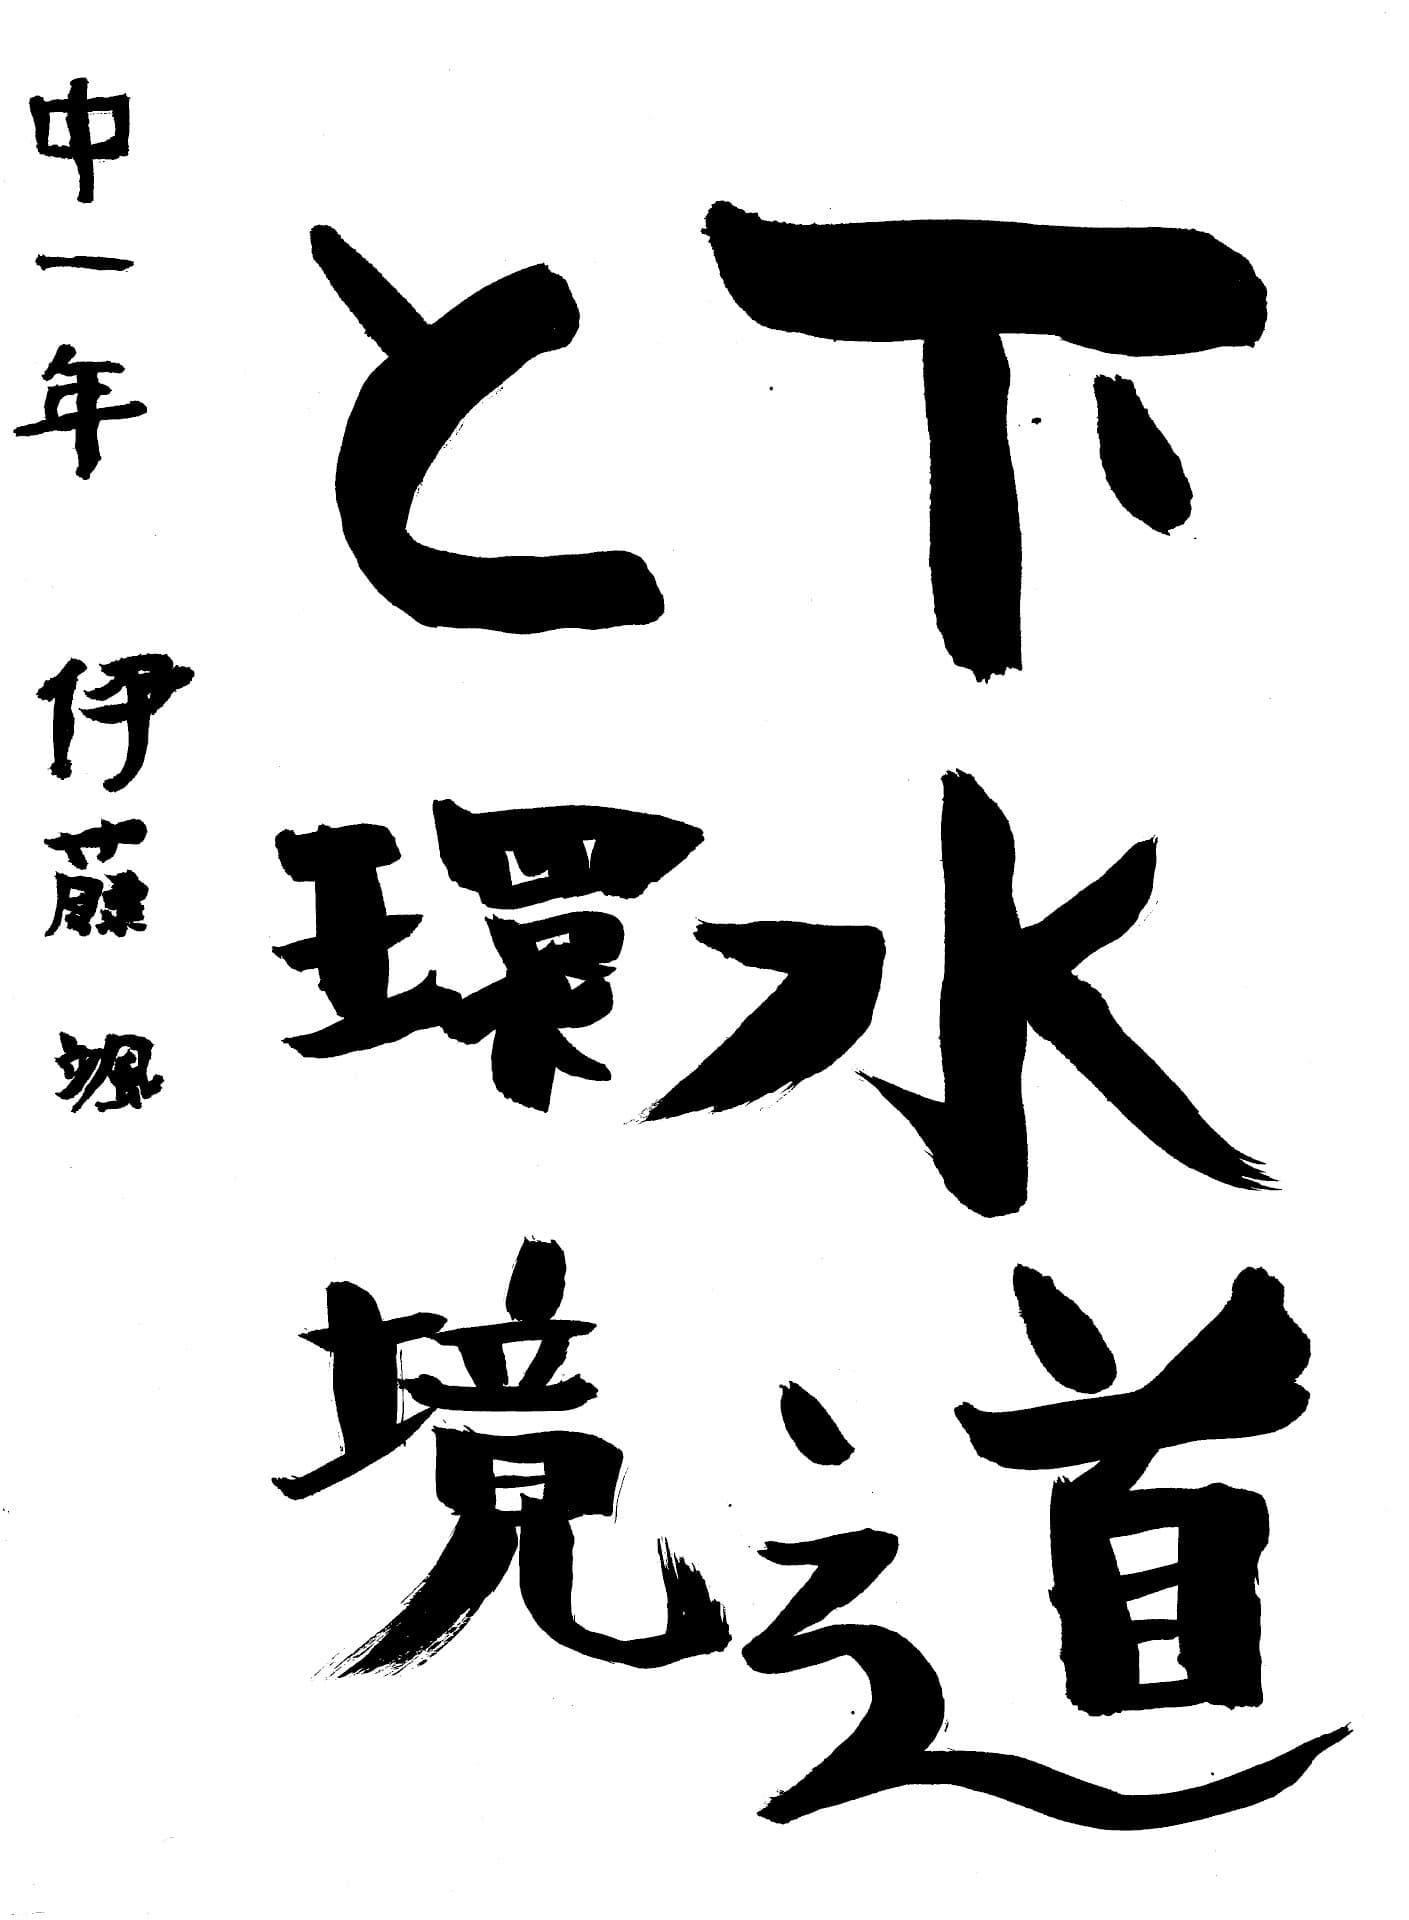 下水道
と環境
中一年 伊藤颯